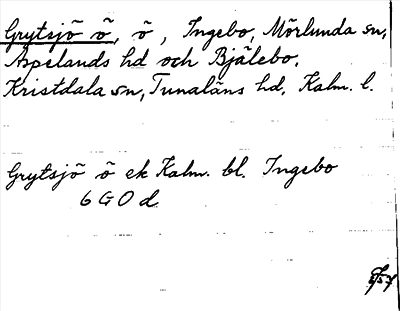 Grytsjö ö, ö, Ingebo, Mörlunda sn,
Aspelands hd och Bjälebo,
Kristdala sn, Tunaläns hd, Kalm. l.
Grytsjö ö ek Kalm. bl. Ingebo
6 G O d